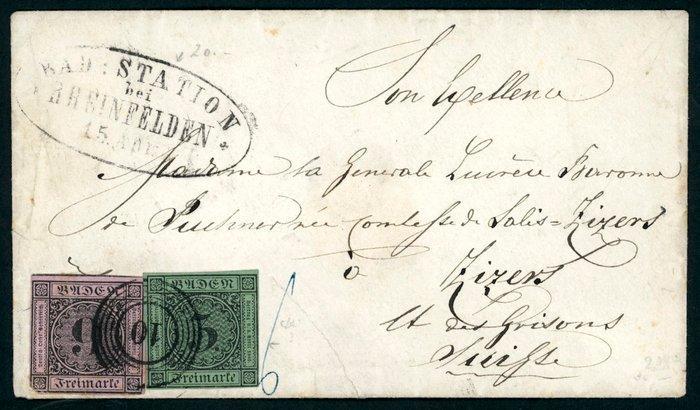 BAD: STATION
bei
RHEINFELDEN *
15. APR.
Son Exellence
Madame la Generale Lucrèce Baronne
de Puchner née Comtesse de Salis=Zizers
à Zizers
Ct des Grisons
Suisse
BADEN
9
Freimarke
10
BADEN
5
Freimarke
6